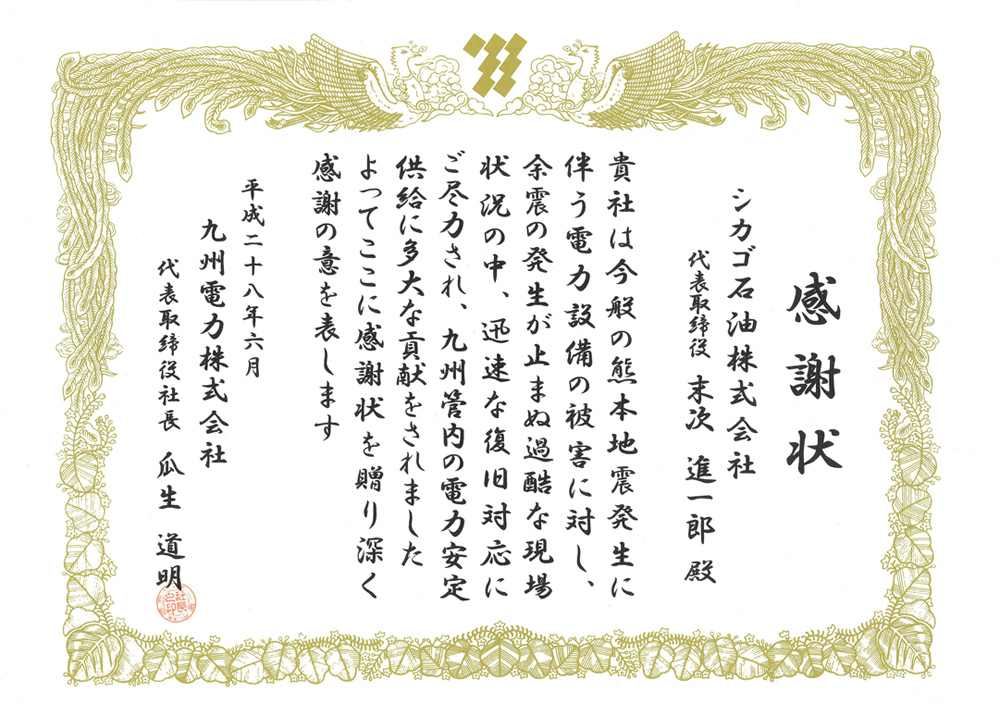 感謝状
シカゴ石油株式会社
代表取締役 末次 進一郎 殿
貴社は今般の熊本地震発生に
伴う電力設備の被害に対し、
余震の発生が止まぬ過酷な現場
状況の中、迅速な復旧対応に
ご尽力され、九州管内の電力安定
供給に多大な貢献をされました
よってここに感謝状を贈り深く
感謝の意を表します
平成二十八年六月
九州電力株式会社
代表取締役社長 瓜生 道明
社長之印